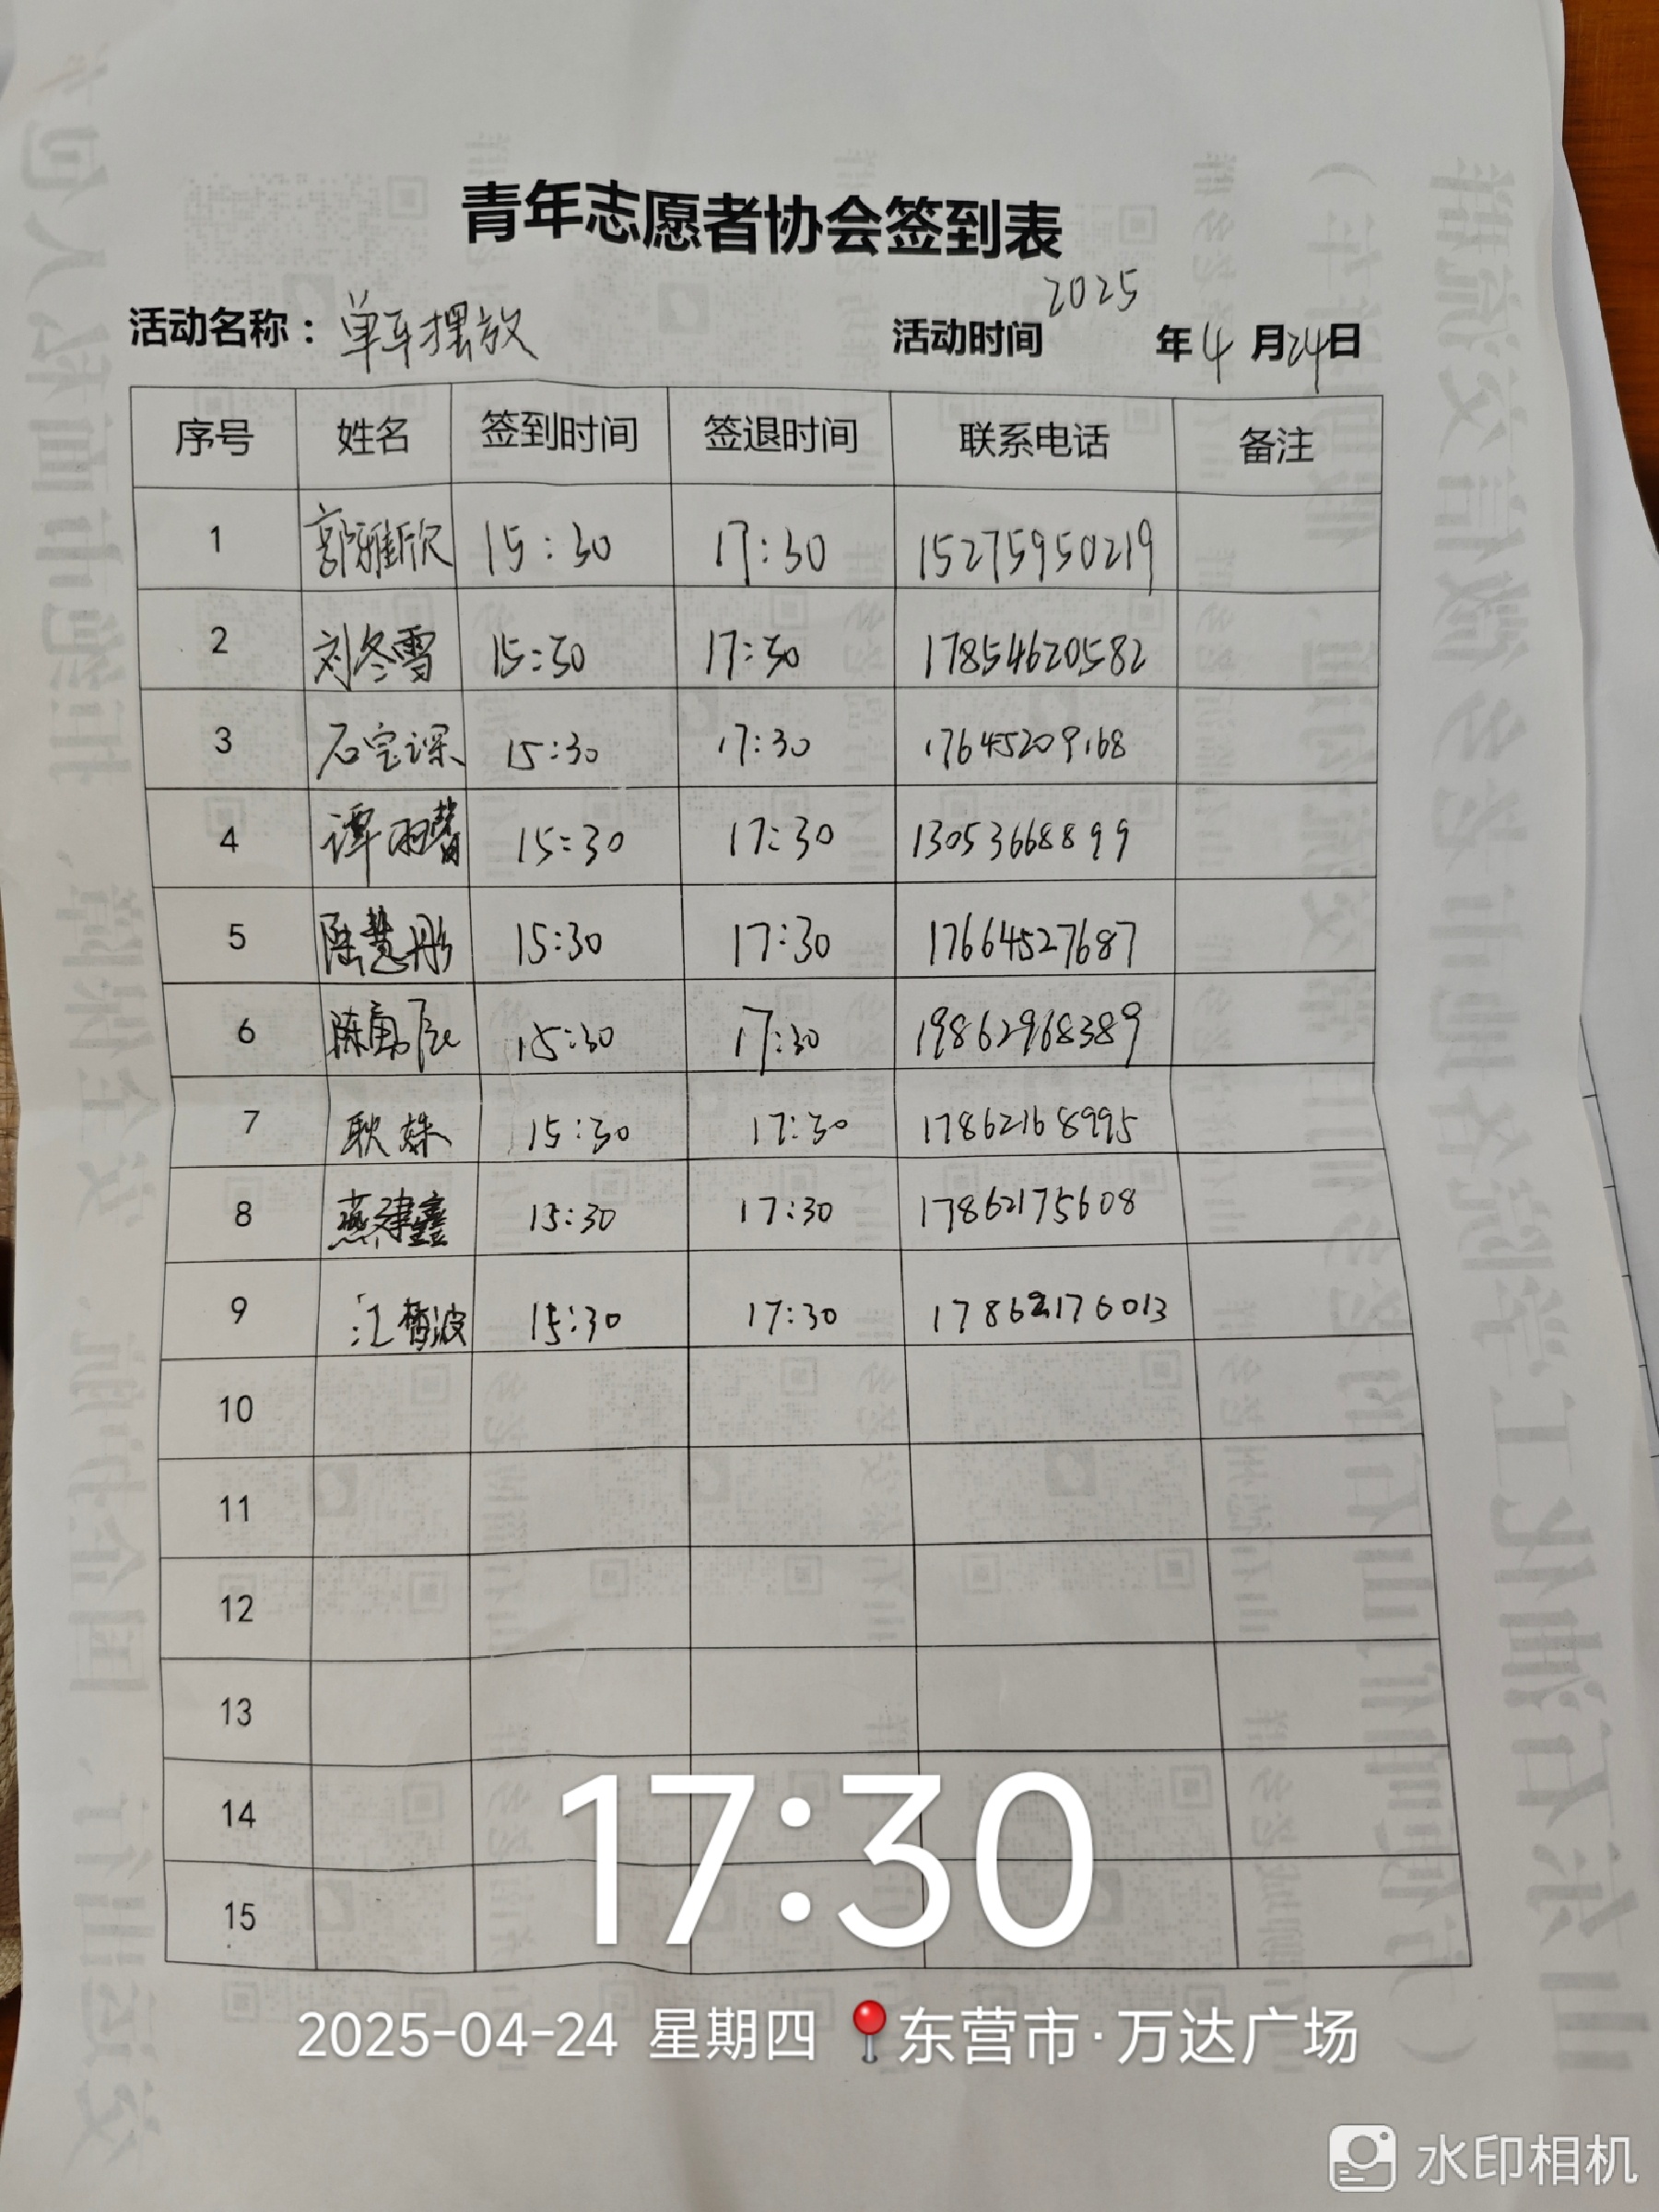 青年志愿者协会签到表
活动名称：单车摆放 活动时间 2025 年 4 月 24 日
序号 姓名 签到时间 签退时间 联系电话 备注
1 郭雅欣 15:30 17:30 15275950219
2 刘冬雪 15:30 17:30 17854620582
3 石宝琛 15:30 17:30 17645209168
4 谭羽馨 15:30 17:30 13053668899
5 陆慧彤 15:30 17:30 17664527687
6 陈勇辰 15:30 17:30 19862968389
7 耿姝 15:30 17:30 17862168995
8 燕建鑫 15:30 17:30 17862175608
9 江梦波 15:30 17:30 17862176013
10
11
12
13
14
15
17:30
2025-04-24 星期四 东营市·万达广场
水印相机